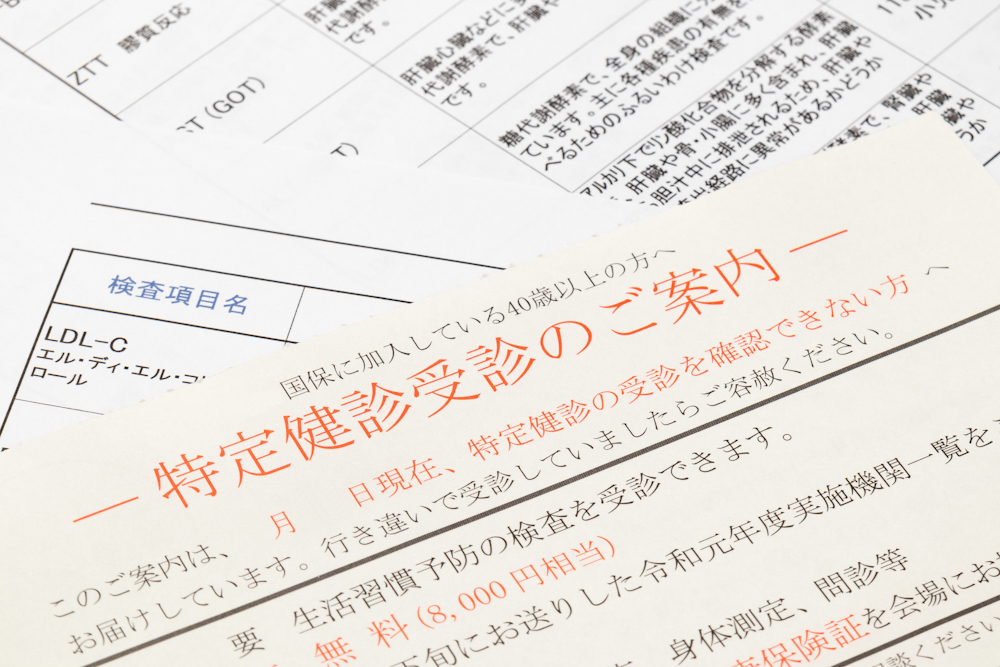 ZTT 膠質反応
肝臓
代謝酵
です。
(GOT)
肝臓心臓などに多
代謝酵素で、肝臓や
です。
糖代謝酵素で、全身の組織に
ています。主に各種疾患の有無を
べるためのふるいわけ検査です。
アルカリ下でリン酸化合物を分解する酵素
、肝臓や骨・小腸に多く含まれ、肝臓
の胆汁中に排泄されるため、肝臓や
出経路に異常があるかどうか
酵素で、腎臓や
検査項目名
LDL-C
エル・ディ・エル・コレ
ロール
国保に加入している40歳以上の方へ
―特定健診受診のご案内―
月 日現在、特定健診の受診を確認できない方へ
このご案内は、
お届けしています。行き違いで受診していましたらご容赦ください。
要 生活習慣予防の検査を受診できます。
無料(8,000円相当)
下旬にお送りした令和元年度実施機関一覧を
身体測定、問診等
保険証を会場にお
談ください